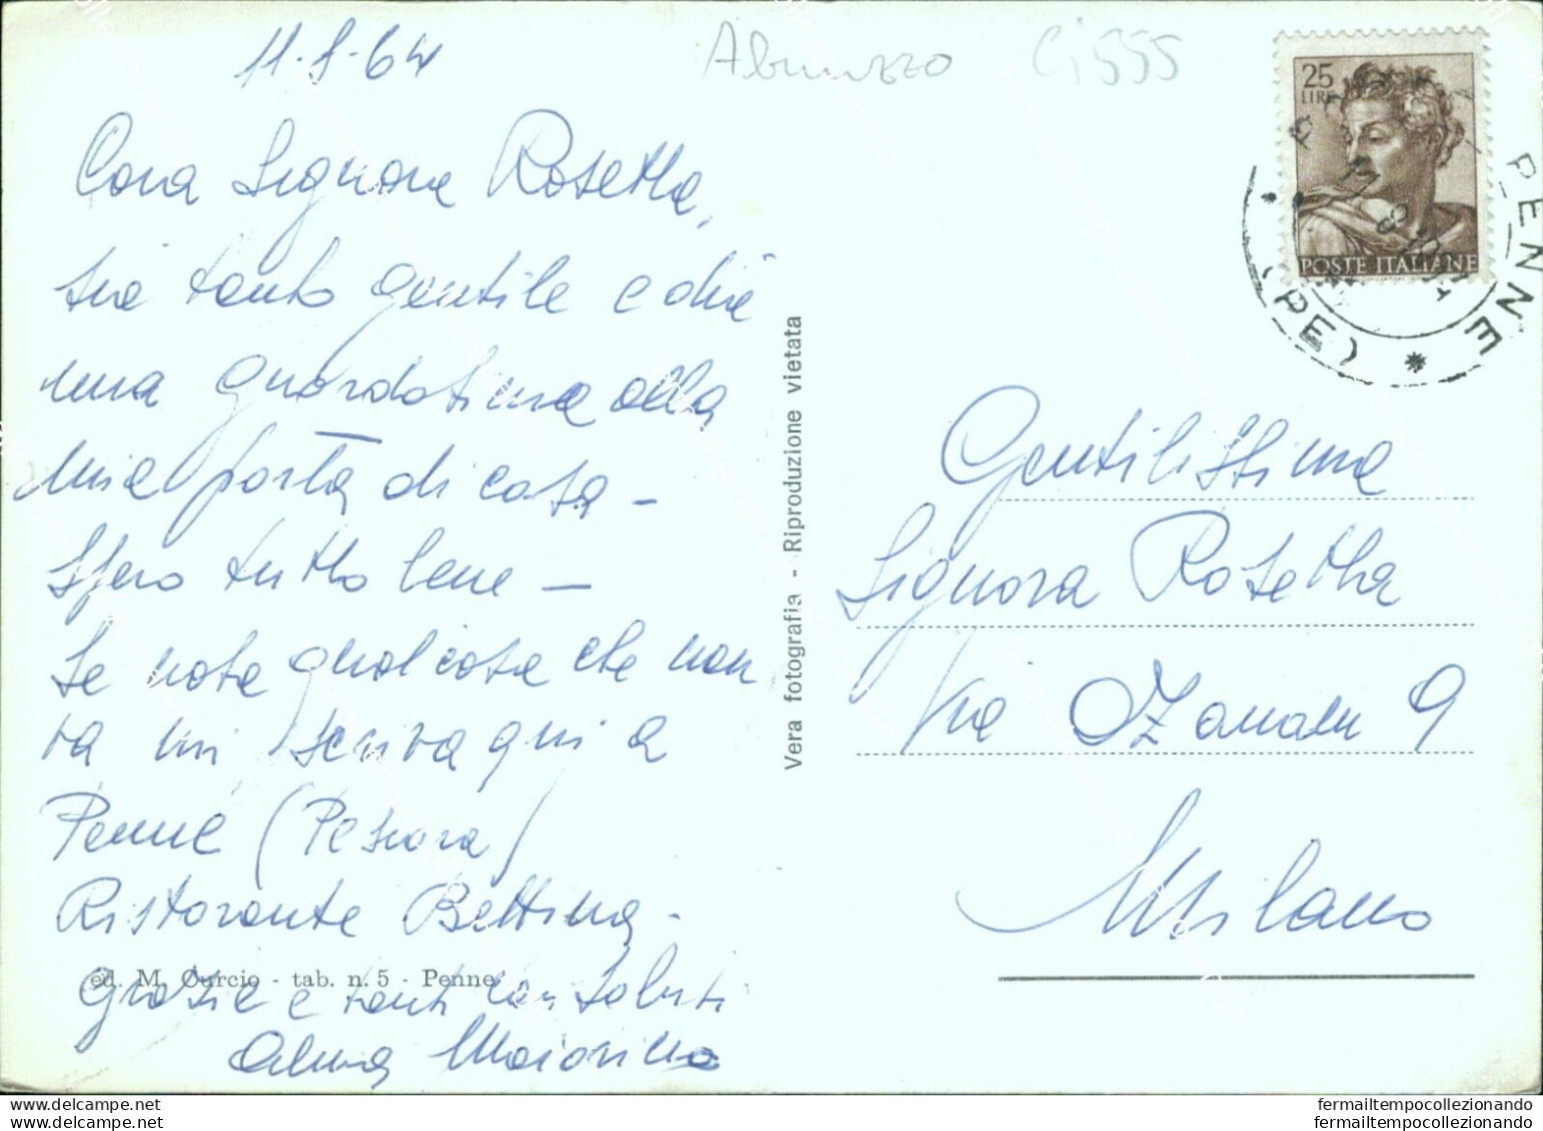 11-8-64
Abruzzo Ci555
Cara Signora Rosetta,
sia tanto gentile e dia
una guardatina alla
mia porta di casa -
Spero tutto bene -
Se nota qualcosa che non
va mi scriva qui a
Penne (Pescara)
Ristorante Bettina -
ed. M. Curcio - tab. n. 5 - Penne
Grazie e tanti cari saluti
Anna Maiorino
Vera fotografia - Riproduzione vietata
25
LIRE
POSTE ITALIANE
PENNE
(PE)
Gentilissima
Signora Rosetta
Via Zanella 9
Milano
fermailtempocollezionando
fermailtempocollezionando.com
fermailtempocollezionando
fermailtempocollezionando.com